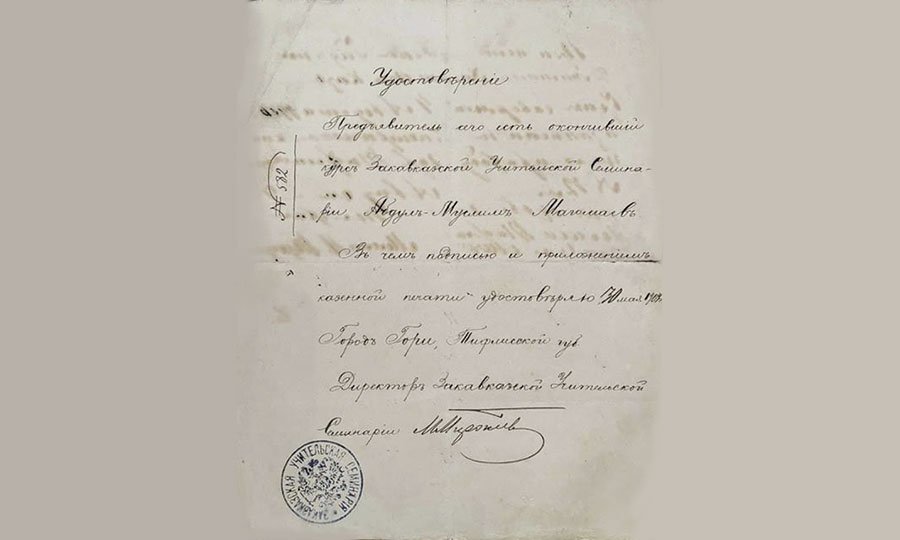 Удостовѣреніе
Предъявитель сего есть окончившій
курсъ Закавказской Учительской Семина-
ріи Абдулъ-Муслимъ Магомаевъ
Въ чемъ подписью и приложеніемъ
казенной печати удостовѣряю 30 мая
Городъ Гори, Тифлисской губ
Директоръ Закавказской Учительской
Семинаріи
№ 582
ЗАКАВКАЗСКАЯ УЧИТЕЛЬСКАЯ СЕМИНАРІЯ